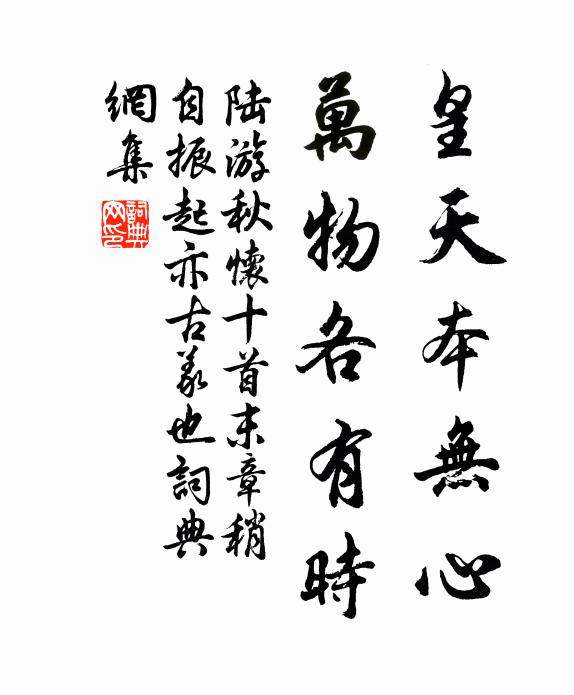 皇天本無心
萬物各有時
陸游秋懷十首末章稍
自振起亦古義也詞典
網集
詞典
网印